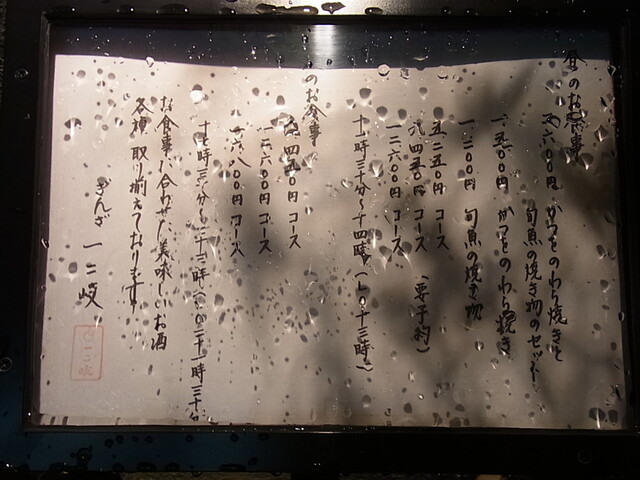 昼のお食事
二、六〇〇円 かつをのわら焼きと
旬魚の焼き物のセット
一、五〇〇円 かつをのわら焼き
一、二〇〇円 旬魚の焼き物
五、二五〇円 コース
八、四五〇円 コース (要予約)
一二、六〇〇円 コース
十一時三十分〜十四時(L.O十三時)
のお食事
八、四五〇円 コース
一二、六〇〇円 コース
一六、八〇〇円 コース
十七時三十分〜二十三時(L.O二十一時三十分
お食事に合わせた美味しいお酒
各種取り揃えております
ぎんざ 一二岐